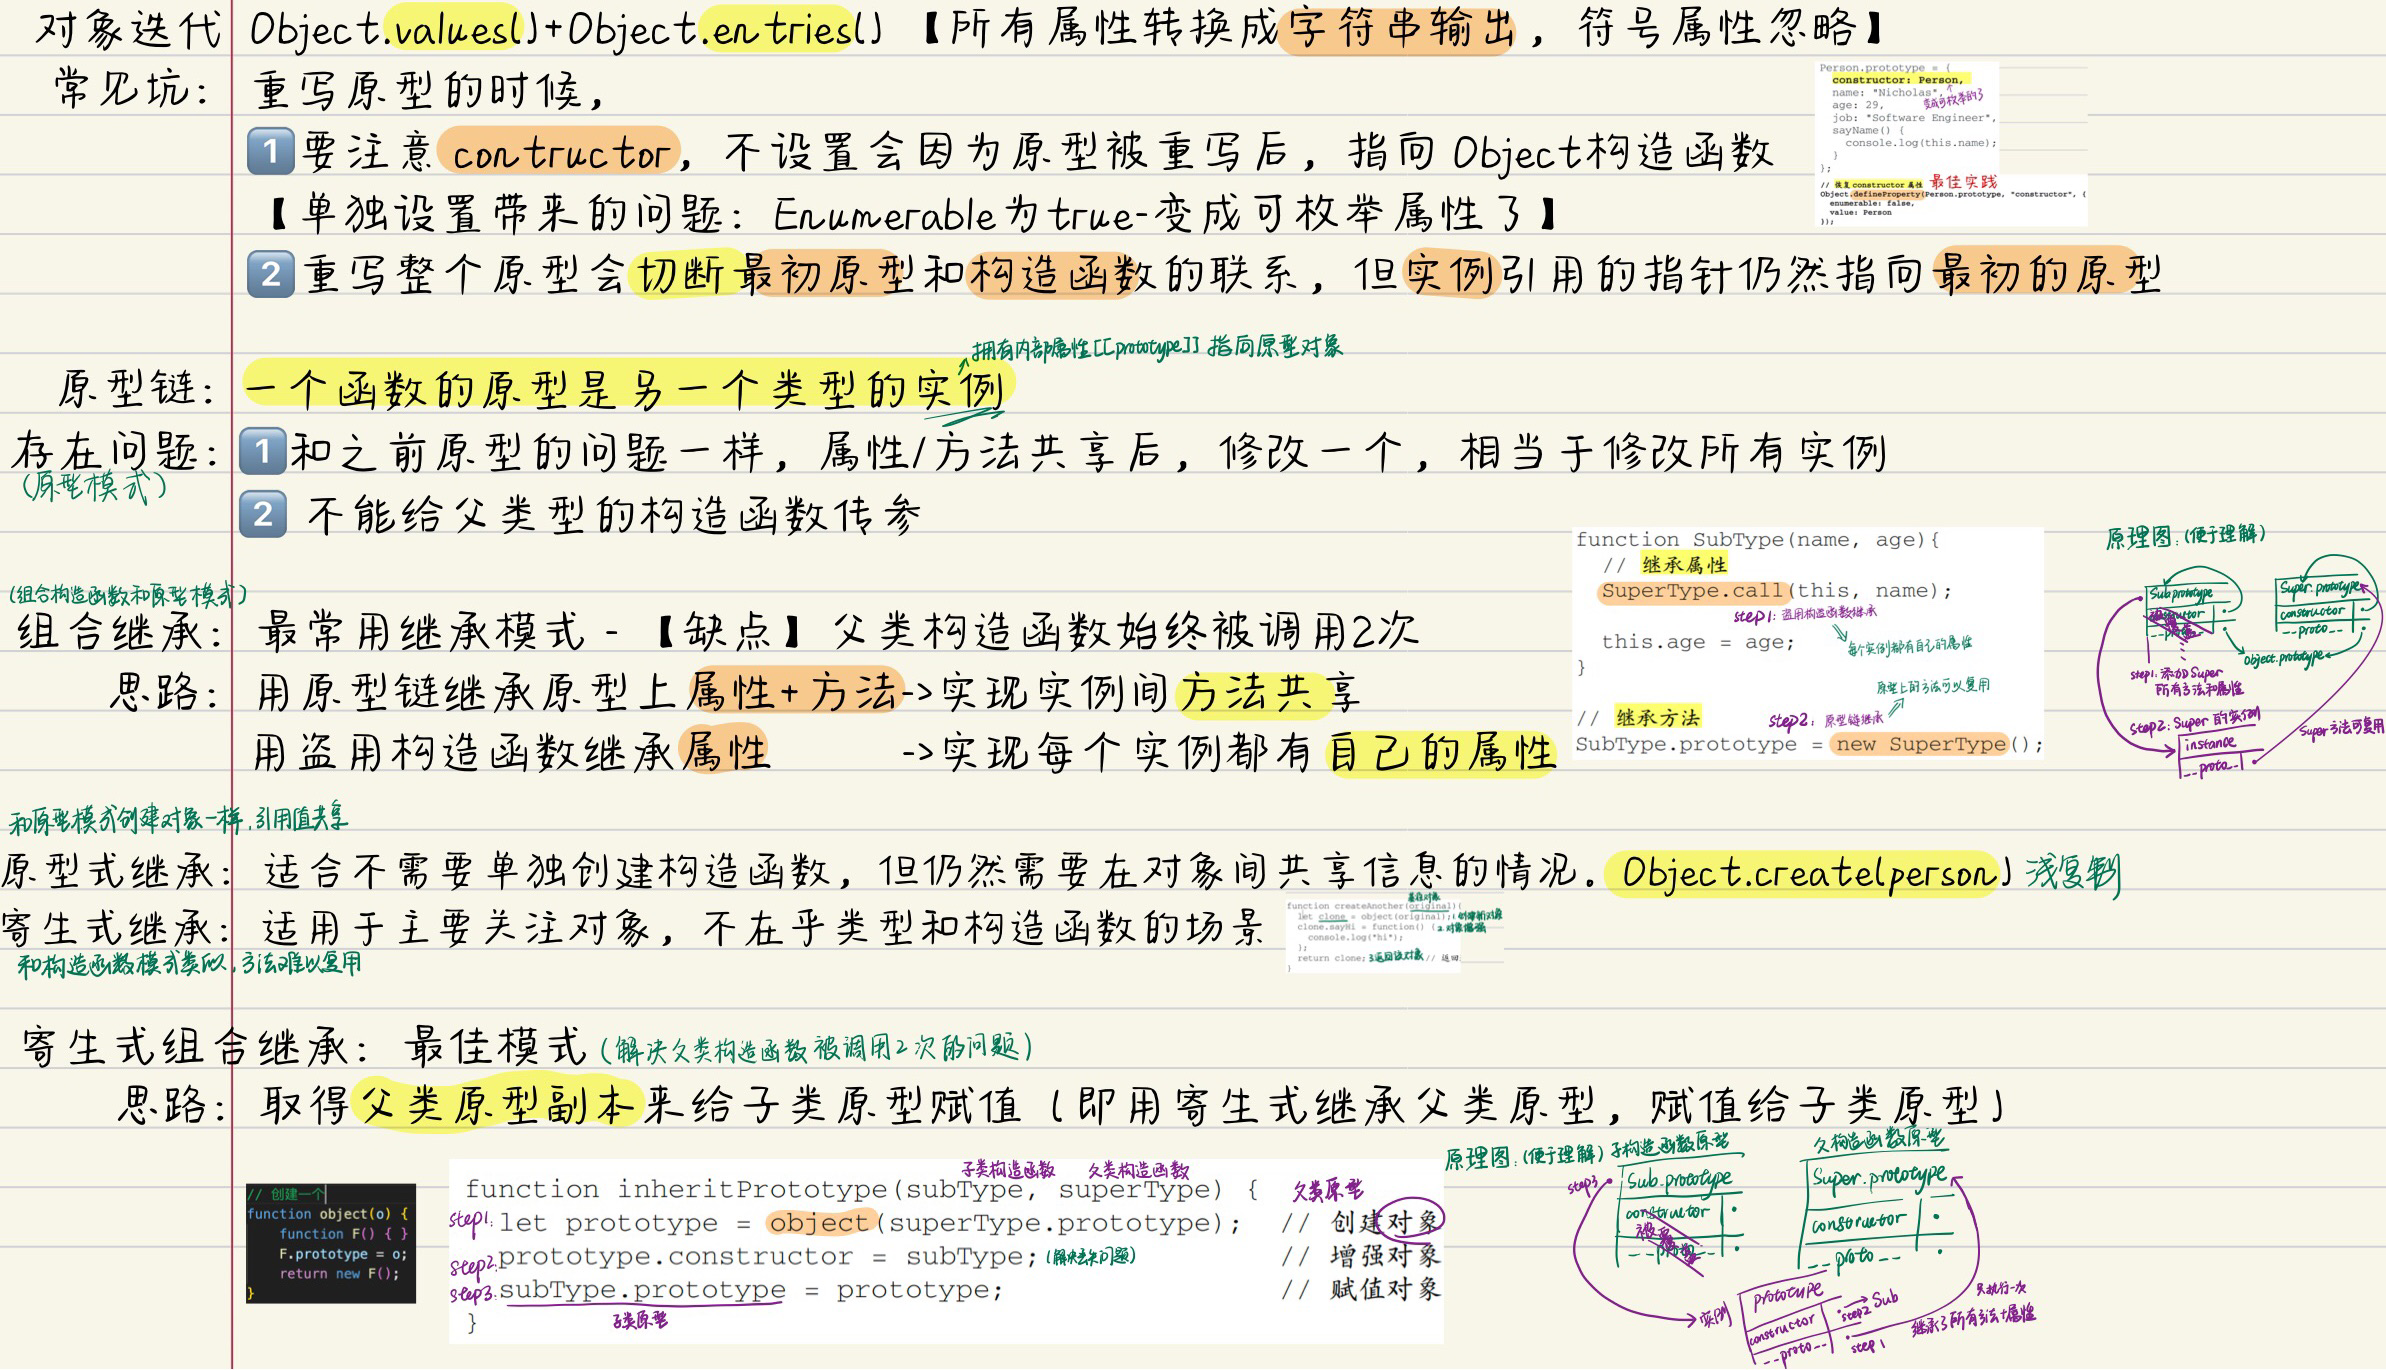 对象迭代 Object.values()+Object.entries() 【所有属性转换成字符串输出，符号属性忽略】
常见坑： 重写原型的时候，
1 要注意contructor，不设置会因为原型被重写后，指向Object构造函数
【单独设置带来的问题：Enumerable为true-变成可枚举属性了】
2 重写整个原型会切断最初原型和构造函数的联系，但实例引用的指针仍然指向最初的原型
Person.prototype = {
constructor: Person,
name: "Nicholas",
变成可枚举的了
age: 29,
job: "Software Engineer",
sayName() {
console.log(this.name);
}
};
// 恢复 constructor 属性 最佳实践
Object.defineProperty(Person.prototype, "constructor", {
enumerable: false,
value: Person
});
拥有内部属性[[prototype]] 指向原型对象
原型链： 一个函数的原型是另一个类型的实例
存在问题： 1 和之前原型的问题一样，属性/方法共享后，修改一个，相当于修改所有实例
(原型模式)
2 不能给父类型的构造函数传参
(组合构造函数和原型模式)
组合继承： 最常用继承模式 - 【缺点】父类构造函数始终被调用2次
思路： 用原型链继承原型上属性+方法->实现实例间方法共享
用盗用构造函数继承属性 ->实现每个实例都有自己的属性
function SubType(name, age){
// 继承属性
SuperType.call(this, name);
step1: 盗用构造函数继承
this.age = age;
每个实例都有自己的属性
}
原型上的方法可以复用
// 继承方法 step2: 原型链继承
SubType.prototype = new SuperType();
原理图:(便于理解)
Sub.prototype
constructor
__proto__
Super.prototype
constructor
__proto__
Object.prototype
step1: 添加Super
所有方法和属性
step2: Super 的实例
instance
__proto__
Super方法可复用
和原型模式创建对象一样,引用值共享
原型式继承： 适合不需要单独创建构造函数，但仍然需要在对象间共享信息的情况。Object.create(person) 浅复制
寄生式继承： 适用于主要关注对象，不在乎类型和构造函数的场景
和构造函数模式类似,方法难以复用
function createAnother(original){
let clone = object(original); 1.创建新对象
clone.sayHi = function() { 2.对象增强
console.log("hi");
};
return clone; 3.返回该对象 // 返回
}
寄生式组合继承： 最佳模式 (解决父类构造函数被调用2次的问题)
思路： 取得父类原型副本来给子类原型赋值（即用寄生式继承父类原型，赋值给子类原型）
// 创建一个
function object(o) {
function F() { }
F.prototype = o;
return new F();
}
子类构造函数 父类构造函数
function inheritPrototype(subType, superType) {
父类原型
step1: let prototype = object(superType.prototype); // 创建对象
step2: prototype.constructor = subType; (解决丢失问题) // 增强对象
step3: subType.prototype = prototype; // 赋值对象
子类原型
}
原理图:(便于理解) 子构造函数原型
step3
Sub.prototype
constructor
__proto__
父构造函数原型
Super.prototype
constructor
__proto__
实例
prototype
constructor
__proto__
step2 Sub
step1
只执行一次
继承了所有方法+属性